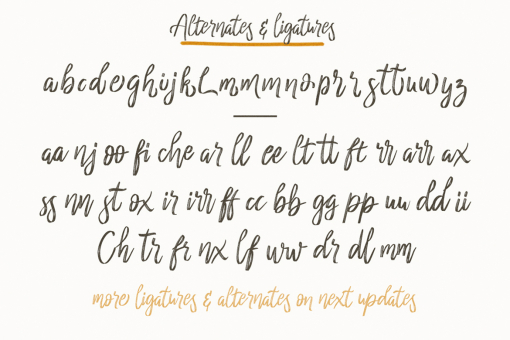 Alternates & ligatures
abcdeoghijkLmmmnoprrsttuwyz
aa nj oo fi che ar ll ee lt tt ft rr arr ax
ss nn st ox ir irr ff cc bb gg pp uu dd ii
Ch tr fr nx lf urw dr dl mm
more ligatures & alternates on next updates